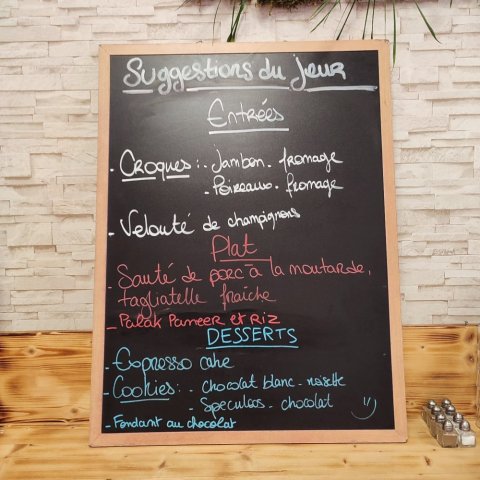 Suggestions du jour
Entrées
- Croques : - Jambon - fromage
- Poireaux - fromage
- Velouté de champignons
Plat
- Sauté de porc à la moutarde,
tagliatelle fraîche
- Palak Paneer et Riz
DESSERTS
- Espresso cake
- Cookies : - chocolat blanc - noisette
- Speculoos - chocolat
- Fondant au chocolat